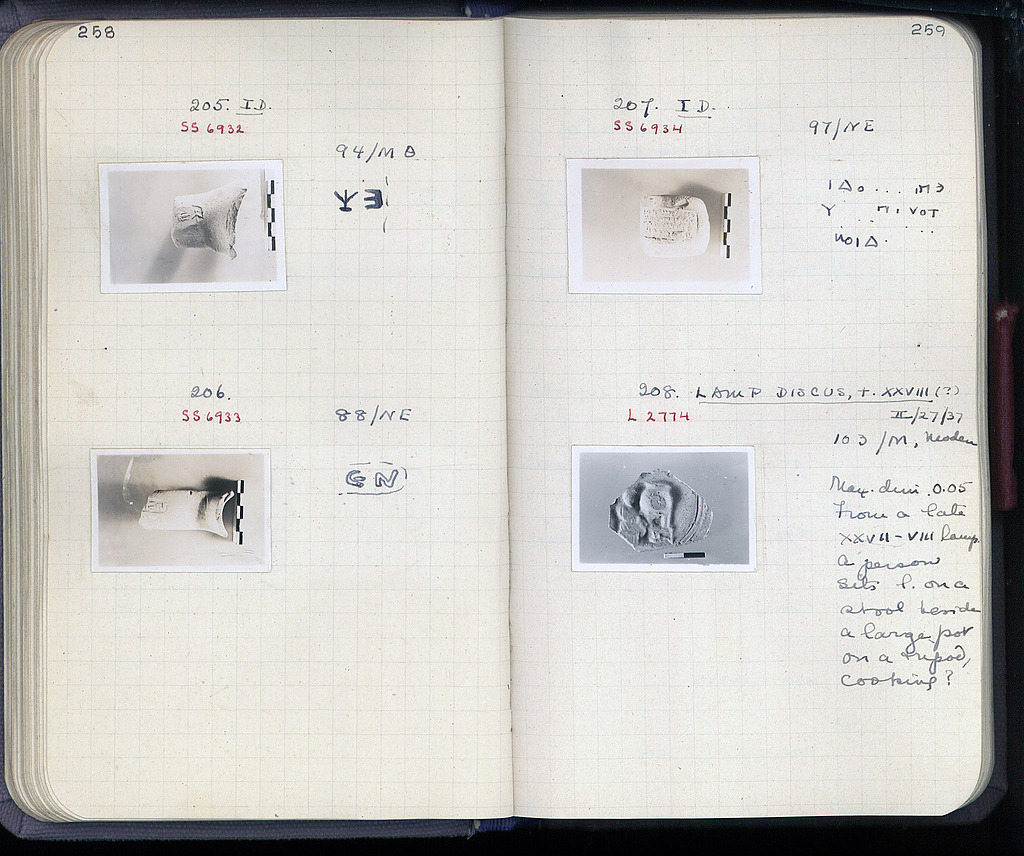 258
205. I D.
SS 6932
94/M Θ
206.
SS 6933
88/NE
259
207. I D.
SS 6934
97/NE
Ι Δ ο . . . .
Υ . . Π Ι V Ο Τ
Ν Ο Ι Δ .
208. LAMP DISCUS, T. XXVIII (?)
L 2774
II/27/37
103/M, Modern
Max. dim. 0.05
From a late
XXVII-VIII lamp.
A person
sits l. on a
stool beside
a large pot
on a tripod,
cooking?